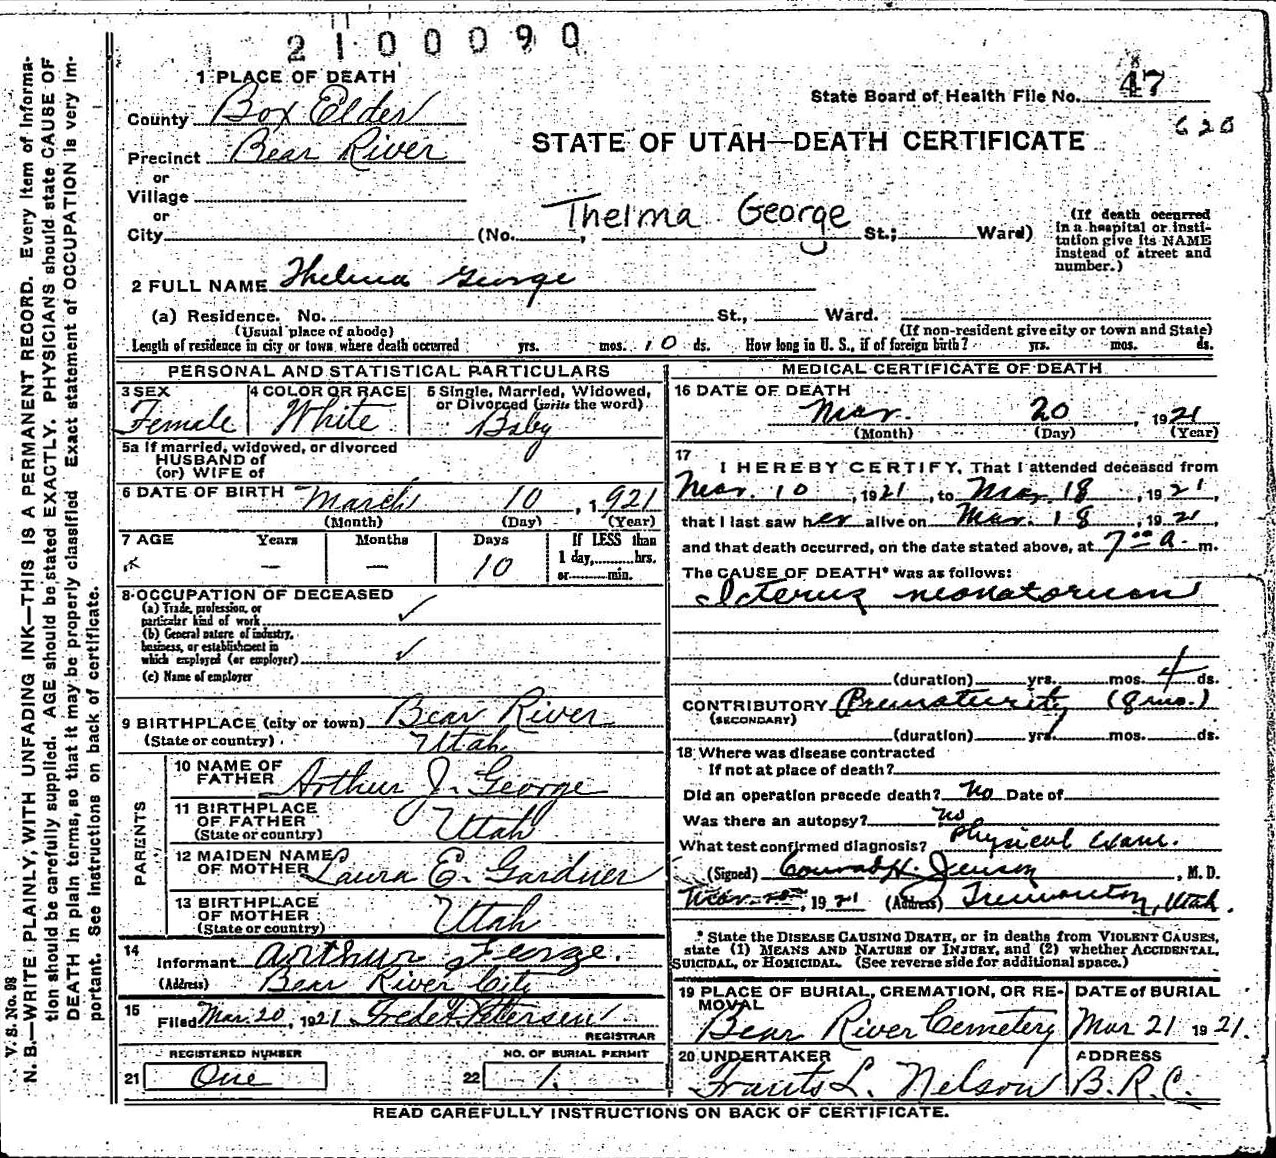 2 1 0 0 0 9 0
1 PLACE OF DEATH
County Box Elder
State Board of Health File No. 47
620
Precinct Bear River
STATE OF UTAH—DEATH CERTIFICATE
or
Village
or
Thelma George
City (No. , St.; Ward)
(If death occurred
in a hospital or insti-
tution give its NAME
instead of street and
number.)
2 FULL NAME Thelma George
(a) Residence. No. St., Ward.
(Usual place of abode) (If non-resident give city or town and State)
Length of residence in city or town where death occurred yrs. mos. 10 ds. How long in U. S., if of foreign birth? yrs. mos. ds.
PERSONAL AND STATISTICAL PARTICULARS
3 SEX 4 COLOR OR RACE 5 Single, Married, Widowed,
or Divorced (write the word)
Female White Baby
5a If married, widowed, or divorced
HUSBAND of
(or) WIFE of
6 DATE OF BIRTH March 10, 1921
(Month) (Day) (Year)
7 AGE Years Months Days If LESS than
1 day, hrs.
or min.
— — 10
8 OCCUPATION OF DECEASED
(a) Trade, profession, or
particular kind of work ✓
(b) General nature of industry,
business, or establishment in
which employed (or employer) ✓
(c) Name of employer
9 BIRTHPLACE (city or town) Bear River
(State or country) Utah
PARENTS
10 NAME OF
FATHER Arthur J. George
11 BIRTHPLACE
OF FATHER Utah
(State or country)
12 MAIDEN NAME
OF MOTHER Laura E. Gardner
13 BIRTHPLACE
OF MOTHER Utah
(State or country)
14
Informant Arthur George.
(Address) Bear River City
15
Filed Mar. 20, 1921 Fred H Petersen
REGISTRAR
REGISTERED NUMBER NO. OF BURIAL PERMIT
21 One 22 1.
MEDICAL CERTIFICATE OF DEATH
16 DATE OF DEATH
Mar. 20, 1921
(Month) (Day) (Year)
17
I HEREBY CERTIFY, That I attended deceased from
Mar. 10, 1921, to Mar. 18, 1921,
that I last saw her alive on Mar. 18, 1921,
and that death occurred, on the date stated above, at 7 00 a. m.
The CAUSE OF DEATH* was as follows:
Icterus neonatorum
(duration) yrs. mos. 4 ds.
CONTRIBUTORY Prematurity (8 mo.)
(SECONDARY)
(duration) yrs. mos. ds.
18 Where was disease contracted
If not at place of death?
Did an operation precede death? No Date of
Was there an autopsy? No
What test confirmed diagnosis? Physical Exam.
(Signed) Conrad H. Jenson, M. D.
Mar. 20, 1921 (Address) Tremonton, Utah.
* State the DISEASE CAUSING DEATH, or in deaths from VIOLENT CAUSES,
state (1) MEANS AND NATURE OF INJURY, and (2) whether ACCIDENTAL,
SUICIDAL, or HOMICIDAL. (See reverse side for additional space.)
19 PLACE OF BURIAL, CREMATION, OR RE-
MOVAL DATE of BURIAL
Bear River Cemetery Mar 21 1921.
20 UNDERTAKER ADDRESS
Frants L. Nelson B. R. C.
READ CAREFULLY INSTRUCTIONS ON BACK OF CERTIFICATE.
V. S. No. 98
N. B.—WRITE PLAINLY, WITH UNFADING INK—THIS IS A PERMANENT RECORD. Every item of informa-
tion should be carefully supplied. AGE should be stated EXACTLY. PHYSICIANS should state CAUSE OF
DEATH in plain terms, so that it may be properly classified. Exact statement of OCCUPATION is very im-
portant. See instructions on back of certificate.